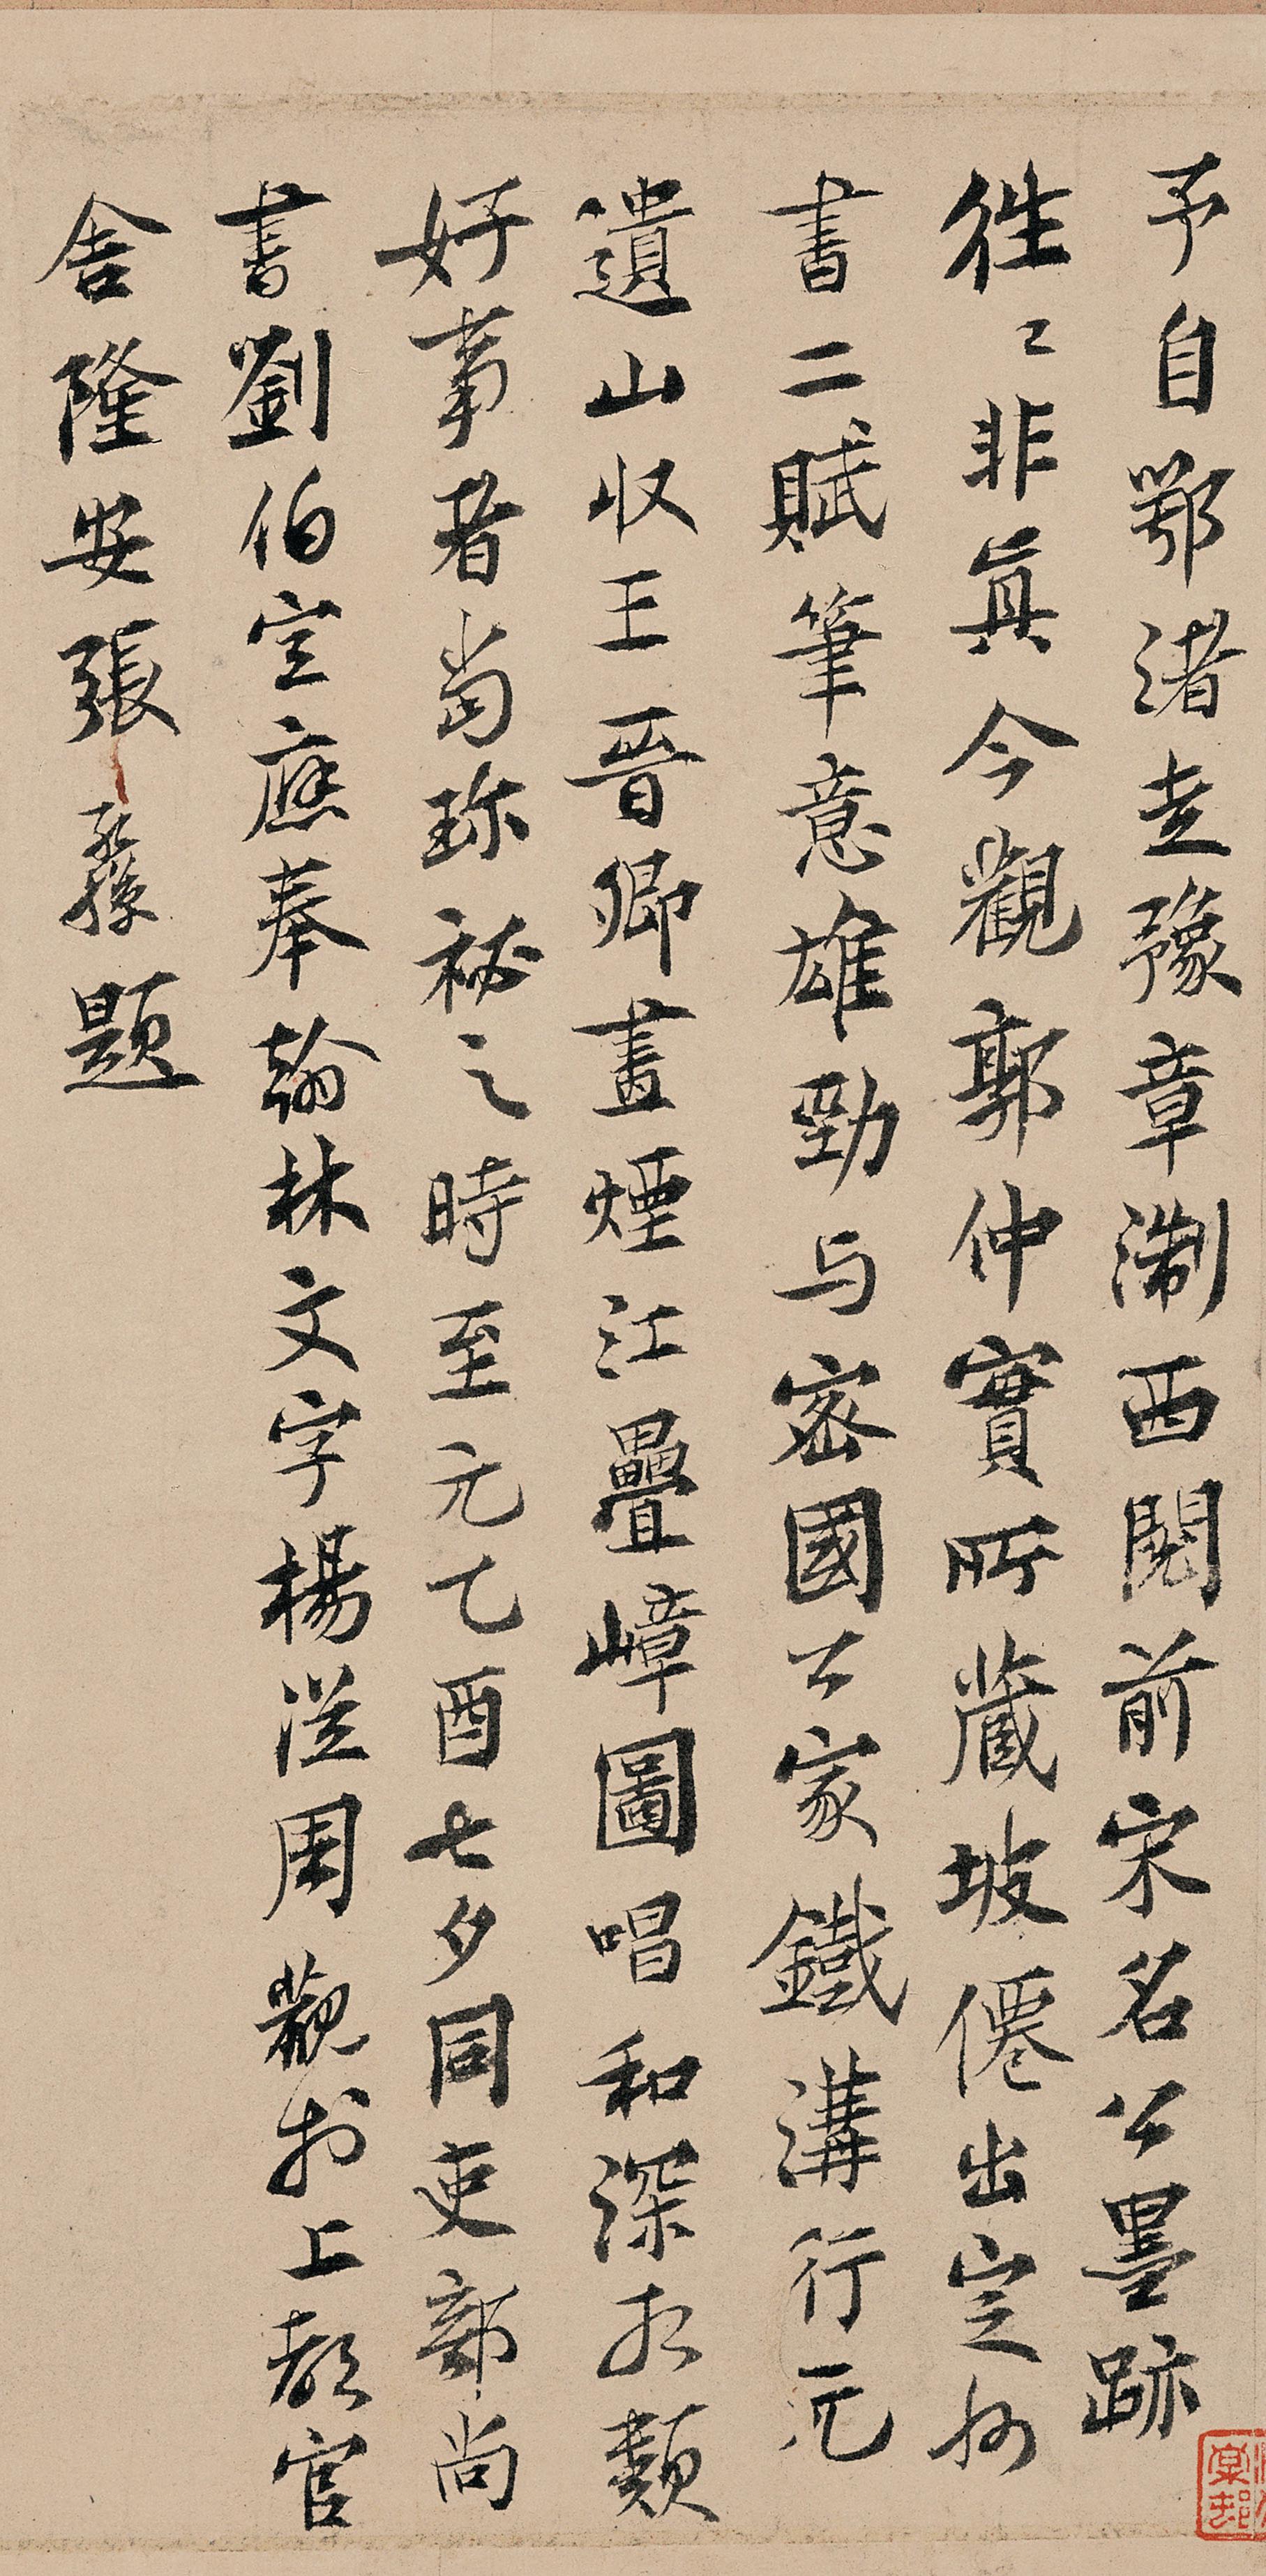 予自鄂渚走豫章淛西閱前宋名公墨跡
往〻非真今觀郭仲實所藏坡僊出定州
書二賦筆意雄勁与密國公家鐵溝行元
遺山收王晉卿畫煙江疊嶂圖唱和深相類
好事者當珍祕之時至元乙酉七夕同吏部尚
書劉伯宣應奉翰林文字楊從周觀於上都官
舍隆安張孔孫題